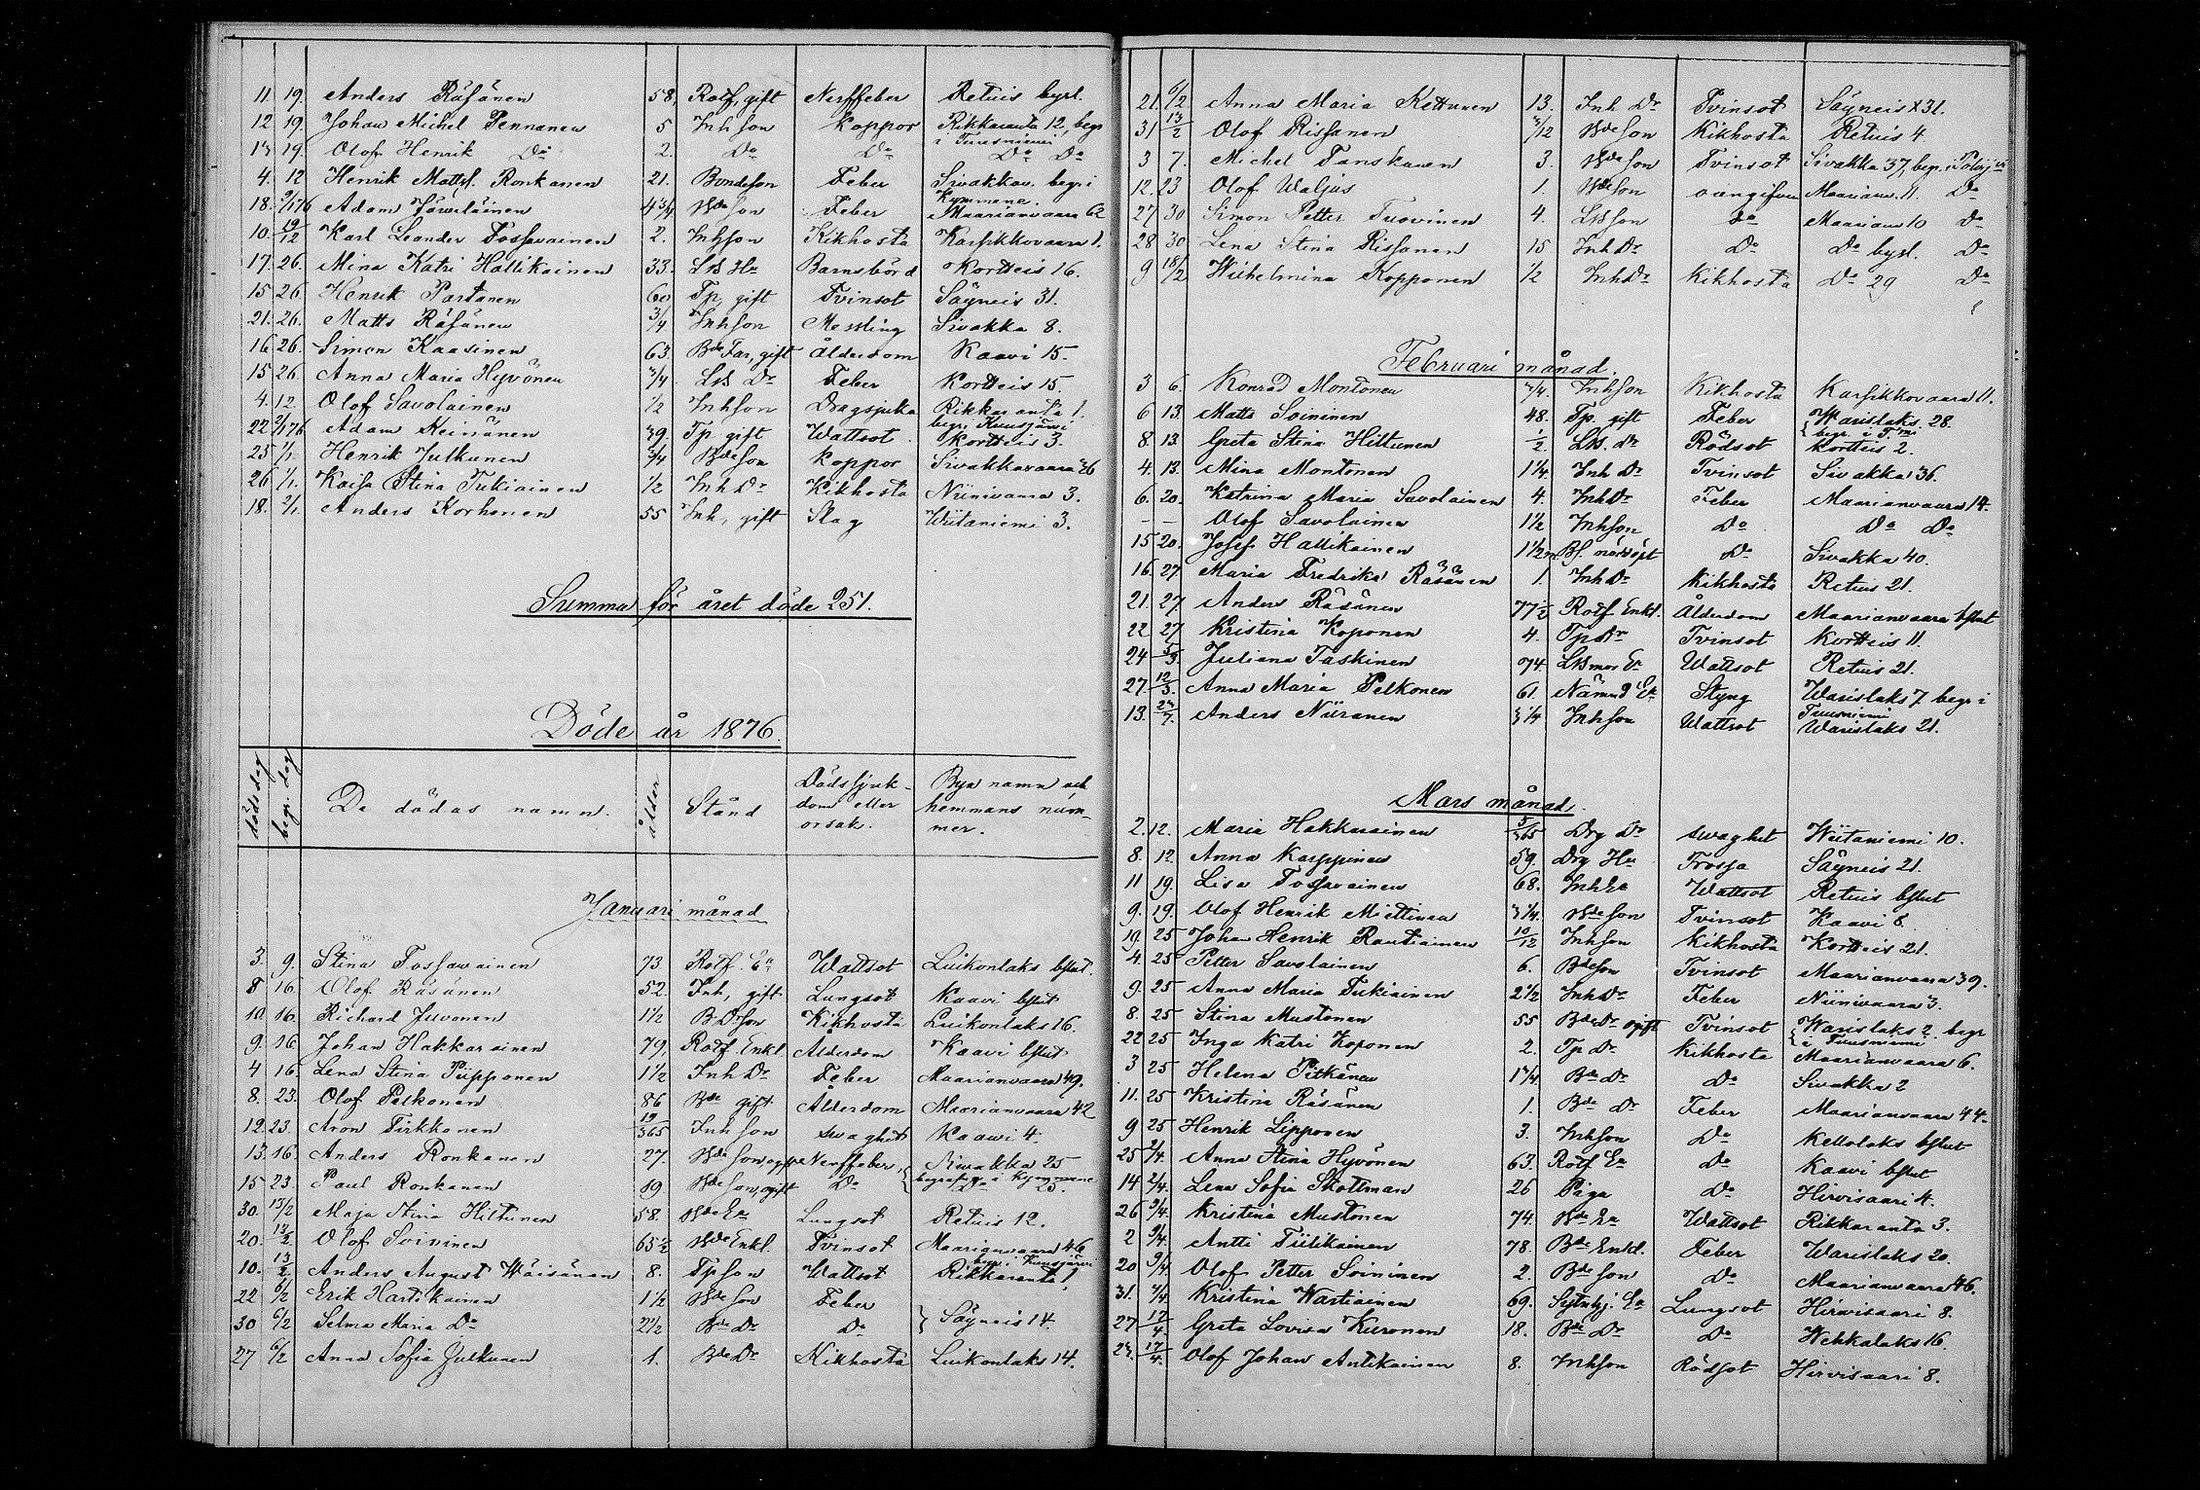 11. 19. Anders Räsänen 58, Rotf, gift Nerffeber Retuis bysl.
12 19. Johan Michel Pennanen 5 Inhson Koppor Rikkaranta 12, begr i Tuusniemi
13 19. Olof Henrik Do 2. Do Do Do Do
4. 12 Henrik Mattsf. Ronkanen 21. Bondeson Feber Sivakkav. begr i Kymmene.
18. 9/1 76 Adam Jäwiläinen 4 3/4 Bdeson Feber Maarianvaara 62
10. 19/12 Karl Leander Tossavainen 2. Inhson Kikhosta Karsikkovaara 1.
17. 26. Mina Katri Hallikainen 33. LB Hu Barnsbörd Kortteis 16.
15 26. Henrik Partanen 60 Tp, gift Tvinsot Säyneis 31.
21. 26. Matts Räsänen 3/4 Inhson Messling Sivakka 8.
16. 26. Simon Kaasinen 63. Bde Far, gift Ålderdom Kaavi 15.
15 26. Anna Maria Hyvönen 3/4. LB Dr Feber Kortteis 15.
4. 12. Olof Savolainen 1/2 Inhson Dragsjuka Rikkaranta 1. begr. Kuusjärvi
22 2/1 76 Adam Keinänen 39. Tp, gift Wattsot Kortteis 3.
25 1/1. Henrik Julkunen 3/4 Bdeson Koppor Sivakkavaara 36
26 1/1. Kaisa Stina Tukiainen 1/2 Inh Dr Kikhosta Niinivaara 3.
18. 2/1. Anders Korhonen 55 Inh, gift Slag Wiitaniemi 3.
Summa för året döde 251.
Döde år 1876.
döds dag begr. dag De dödas namn. ålder Stånd Dödssjuk- dom eller orsak. Byn namn och hemmans num- mer.
Januari månad
3. 9. Stina Tossavainen 73. Rotf. Ea Wattsot Luikonlaks bslut.
8 16. Olof Räsänen 52. Inh, gift. Lungsot Kaavi bslut
10. 16. Richard Juvonen 1 1/2 B Dson Kikhosta Luikonlaks 16.
9. 16. Johan Hakkarainen 79, Rotf Enkl Ålderdom Kaavi bslut
4 16. Lena Stina Piipponen 1 1/2 Inh Dr Feber Maarianvaara 49.
8. 23. Olof Pelkonen 86 Bde gift. Ålderdom Maarianvaara 42
12. 23. Aron Tirkkonen 19/365 Inhson swaghet Kaawi 4.
13. 16. Anders Ronkanen 27. Bdeson ogift Nerffeber, Sivakka 25
15 23. Paul Ronkanen 19 Bdeson, ogift Do begrafven i Kymmene Do 25.
30. 13/2 Maja Stina Hiltunen 58. Bde Ea Lungsot Retuis 12.
20. 13/2. Olof Soininen 65 1/2 Bde Enkl. Tvinsot Maarianvaara 46
10. 13/2. Anders August Wäisänen 8. Tpson Wattsot begr. i Kuusjärvi Rikkaranta 1.
22 6/2 Erik Hartikainen 1 1/2 Bdeson Feber Säyneis 14.
30 6/2 Selma Maria Do 2 1/2 Bde Dr Do
27 6/2 Anna Sofia Julkunen 1. Bde Dr Kikhosta Luikonlaks 14.
21. 6/2. Anna Maria Kettunen 13. Inh Dr Tvinsot Säyneis 31.
31 13/2 Olof Rissanen 3/12 Bdeson Kikhosta Retuis 4
3 7. Michel Tanskanen 3. Bdeson Tvinsot Sivakka 37, begr. i Polvij.
12. 23 Olof Waljus 1. Bdeson oangifven Maarianv. 11. Do
27 30 Simon Petter Tuovinen 4. LBson Do Maarianv 10 Do
28 30 Lena Stina Rissanen 15 Inh Dr Do Do bysl. Do
9 18/2 Wilhelmina Kopponen 1/2 Inh Dr Kikhosta Do 29 Do
Februari månad.
3 6. Konrad Montonen 3/4. Inhson Kikhosta Karsikkovaara 11.
6 13. Matts Soininen 48. Tp. gift Feber Warislaks. 28. begr. i T.mi
8. 13 Greta Stina Hiltunen 1/2. LB. Dr Rödsot Kortteis 2.
4. 13. Mina Montonen 1 1/4 Inh Dr Tvinsot Sivakka 36.
6. 20. Katrina Maria Savolainen 4. Inh Dr Feber Maarianvaara 14.
— — Olof Savolainen 1 1/2 Inhson Do Do Do
15 20. Josef Hallikainen 1 1/2 Do Sivakka 40.
16. 27. Maria Fredrika Räsänen 1. Inh Dr Kikhosta Retuis 21.
21. 27. Anders Räsänen 77 1/2 Rotf Enkl. Ålderdom Maarianvaara bslut
22 27. Kristina Koponen 4. Tp Dr Tvinsot Kortteis 11.
24 5/3. Juliana Taskinen 74. LBmor Ea Wattsot Retuis 21.
27. 12/3. Anna Maria Pelkonen 61. Nämnd Ea Styng Warislaks 7 begr i Tuusniemi
13. Anders Niiranen 3 1/4 Inhson Wattsot Warislaks 21.
Mars månad.
2. 12. Maria Hakkarainen 5/365 Drg Dr swaghet Wiitaniemi 10.
8. 12. Anna Karppinen 59. Drg Hu Frossa Säyneis 21.
11 19. Lisa Tossavainen 68. Inh Ea Wattsot Retuis bslut
9. 19. Olof Henrik Miettinen 3 1/4. Bdeson Tvinsot Kaavi 8.
19. 25 Johan Henrik Rautiainen 10/12 Inhson Kikhosta Kortteis 21.
4 25 Petter Savolainen 6. Bdeson Tvinsot Maarianvaara 39.
9. 25 Anna Maria Tukiainen 2 1/2 Inh Dr Feber Niinivaara 3.
8. 25 Stina Mustonen 55 Bde Dr ogift Tvinsot Warislaks 2. begr i Tuusniemi
22 25 Inga Katri Koponen 2. Tp Dr Kikhosta Maarianvaara 6.
3 25 Helena Pitkänen 1 3/4. Bde Dr Do Sivakka 2
11. 25 Kristina Räsänen 1. Bde Dr Feber Maarianvaara 44.
9 25 Henrik Lipponen 3. Inhson Do Kettolaks bslut
25 2/4 Anna Stina Hyvönen 63. Rotf Ea Do Kaavi bslut
14 2/4. Lena Sofia Skottman 26 Piga Do Hirvisaari 4.
26 2/4. Kristina Mustonen 74. Bde Ea Wattsot Rikkaranta 3.
2 9/4. Antti Tiilikainen 78. Bde Enkl. Feber Warislaks 20.
20 9/4. Olof Petter Soininen 2. Bdeson Do Maarianvaara 46.
31. 9/4. Kristina Wartiainen 69. Sytnhj. Ea Lungsot Hirvisaari 8.
27 17/4. Greta Lovisa Kuronen 18. Bde Dr Do Wehkalaks 16.
23. 17/4. Olof Johan Antikainen 8. Inhson Rödsot Hirvisaari 8.